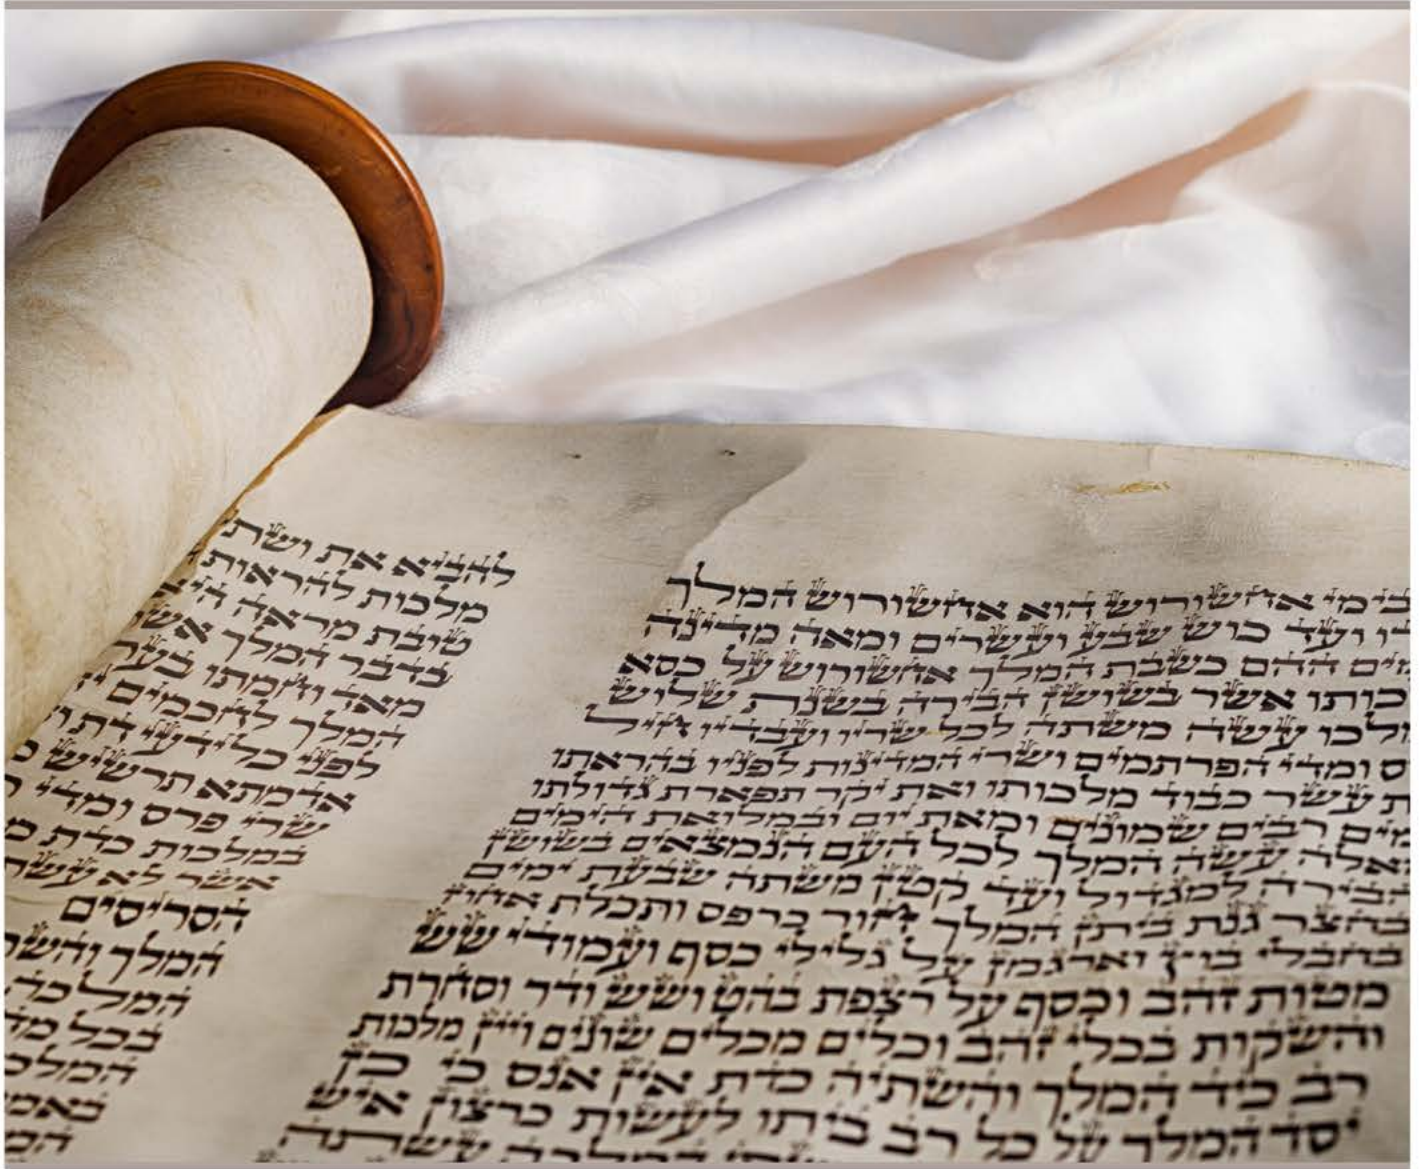 בימי אחשורוש הוא אחשורוש המלך
ועד כוש שבע ועשרים ומאה מדינה
ההם כשבת המלך אחשורוש על כסא
כותו אשר בשושן הבירה בשנת שלוש
עשה משתה לכל שריו ועבדיו חיל
ס ומדי הפרתמים ושרי המדינות לפניו בהראתו
ת עשר כבוד מלכותו ואת יקר תפארת גדולתו
מים רבים שמונים ומאת יום ובמלואת הימים
אלה עשה המלך לכל העם הנמצאים בשושן
הבירה למגדול ועד קטן משתה שבעת ימים
בחצר גנת ביתן המלך חור כרפס ותכלת אחוז
בחבלי בוץ וארגמן על גלילי כסף ועמודי שש
מטות זהב וכסף על רצפת בהט ושש ודר וסחרת
והשקות בכלי זהב וכלים מכלים שונים ויין מלכות
רב כיד המלך והשתיה כדת אין אנס כי כן
יסד המלך על כל רב ביתו לעשות כרצון איש
המלכה עשתה
להביא את ושת
מלכות להראות
טובת מראה היא
כדבר המלך אש
מאד וחמתו בער
המלך לחכמים י
לפני כל ידעי דת ו
אדמתא תרשיש
שרי פרס ומדי ר
במלכות כדת מ
אשר לא עשת
הסריסים
המלך והשר
המלכה
בכל מד
המלכ
באמ
המ